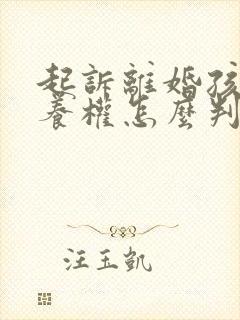 起訴離婚孩
養權怎麼判
汪玉凱